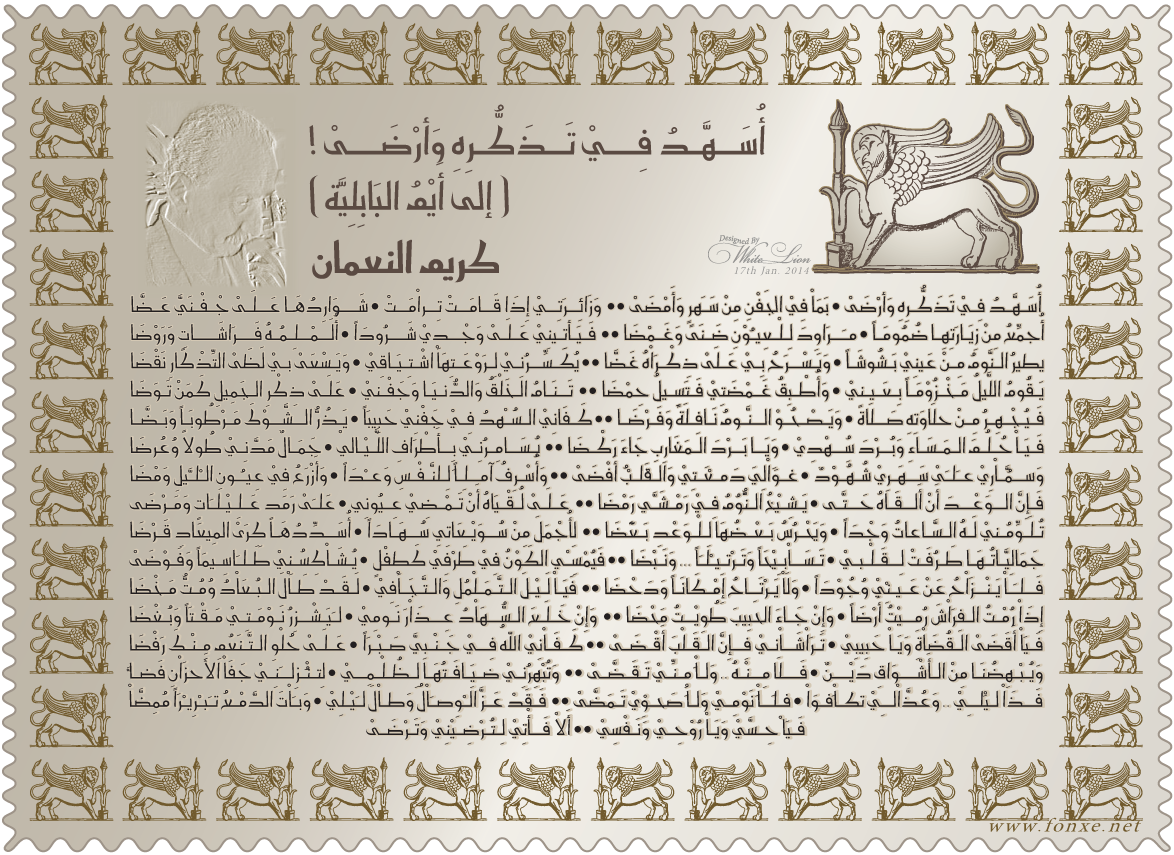 أُسَهَّدُ فِيْ تَذَكُّرِهِ وَأَرْضَىْ !
( إلى أَيْمُ البَابِلِيَّة )
كريم النعمان
Designed By
White Lion
17th Jan. 2014
أُسَهَّدُ فِيْ تَذَكُّرِهِ وَأَرْضَىْ • بِمَا فِي الجَفْنِ مِنْ سَهَرٍ وَأَمْضَىْ •• وَزَائِرَتِيْ إِذَا قَامَتْ تِرَامَتْ • شَوَارِدُهَا عَلَىْ جَفْنَيَّ عَضَّا
أُجَمِّعُ مِنْ زِيَارَتِهَا ضُمُوْمَاً • مَرَاوِدَ لِلْعُيُوْنِ ضَنَىً وَغَمْضَا •• فَيَأْتِينِي عَلَىْ وَجْدِيْ شَرُودَاً • أُلَمْلِمُهُ فَرَاشَاتٍ وَرَوْضَا
يَطِيْرُ النَّوْمُ مِنْ عَيْنِي بَشُوشَاً • وَيَسْرَحُ بِي عَلَىْ ذِكْرَاهُ غَضَّا •• يُكَسِّرُنِي لِرَوْعَتِهَا اشْتِيَاقِي • وَيَسْعَىْ بِي لَظَى التِّذْكَارِ نَقْضَا
يَقُومُ اللَّيْلُ مَخْزُوْمَاً بِعَيْنِي • وَأُطْبِقُ غَمْضَتِي فَتَسِيْلُ حَمْضَا •• تَنَامُ الخَلْقُ وَالدُّنْيَا وَجَفْنِي • عَلَىْ ذِكْرِ الجَمِيْلِ كَمَنْ تَوَضَّا
فَيَجْهَرُ مِنْ حَلَاوَتِهِ صَلَاةً • وَيَصْحُوْ النَّوْمُ نَافِلَةً وَفَرْضَا •• كَفَانِي السُّهْدُ فِيْ جَفْنِي حَبِيبَاً • يَدُرُّ الشَّوْكَ مَرْطُوبَاً وَبَضَّا
فَيَا حُلُمَ المَسَاءِ وَبُرْدَ سُهْدِي • وَيَا بَرْدَ المَغَارِبِ جَاءَ رَكْضَا •• يُسَامِرُنِي بِأَطْرَافِ اللَّيَالِي • جَمَالٌ مَدَّنِي طُولَاً وَعَرْضَا
وَسُمَّارِي عَلَىْ سَهَرِي شُهُوْدٌ • غَوَالِي دَمْعَتِي وَالقَلْبُ أَفْضَىْ •• وَأُسْرِفُ آمِلَاً لِلنَّفْسِ وَعْدَاً • وَأَزْرَعُ فِيْ عُيُونِ اللَّيْلِ وَمْضَا
فَإِنَّ الوَعْدَ أَنْ أَلْقَاهُ حَتَّىْ • يَشِيْعُ النَّوْمُ فِيْ رَمْشَيَّ رَمْضَا •• عَلَىْ لُقْيَاهُ أَنْ تَمْضِي عُيُونِي • عَلَىْ رَمَدٍ عَلِيْلَاتٍ وَمَرْضَىْ
تُلَوِّمُنِي لَهُ السَّاعَاتُ وَجْدَاً • وَيَحْرُسُ بَعْضُهَا لِلْوَعْدِ بَعْضَا •• لِأَجْمَلِ مِنْ سُوَيْعَاتِي سُهَادَاً • أُسَدِّدُهَا كَرَى المِيْعَادِ قَرْضَا
جَمَالِيَّاتُهَا طَرَقَتْ لِقَلْبِي • تَسَابِيْحَاً وَتَرْتِيْلَاً ... وَنَبْضَا •• فَيُمْسِي الكَوْنُ فِيْ طَرْفِي كَطِفْلٍ • يُشَاكِسُنِي طَلَاسِيمَاً وَفَوْضَىْ
فَلَا يَنْزَاحُ عَنْ عَيْنِيْ وُجُودَاً • وَلَا يَرْتَاحُ إِمْكَانَاً وَدَحْضَا •• فَيَا لَيْلَ التَّمَلْمُلِ وَالتَّجَافِي • لَقَدْ طَالَ البُعَادُ وَمُتُّ مَخْضَا
إِذَا رُمْتُ الفِرَاشَ رَمَيْتُ أَرْضَاً • وَإِنْ جَاءَ الحَبِيبُ طُوِيْتُ مَحْضَا •• وَإِنْ خَلَعَ السُّهَادُ عِذَارَ نَوْمِي • لَيَشْزُرُ نَوْمَتِي مَقْتَاً وَبُغْضَا
فَيَا أَقْضَى القُضَاةِ وَيَا حَبِيبِي • تَرَاشَانِي فَإِنَّ القَلْبَ أَقْضَىْ •• كَفَانِي اللهُ فِيْ جَنْبِي صَبْرَاً • عَلَىْ حُلْوِ التَّنَعُّمِ مِنْكَ رَفْضَا
وَيَبْهَضُنَا مِنَ الأَشْوَاقِ دَيْنٌ • فَلَا مِنْهُ .. وَلَا مِنِّيْ تَقَضَّىْ •• وَتُبْهِرُنِي ضِيَافَتُهَا لِظُلْمِي • لِتُنْزِلَنِي جِفَا الأَحْزَانِ فَضَّا
فَذَا لَيْلِي .. وَعُذَّالِي تَكَافَوْا • فَلَا نَوْمِي وَلَا صَحْوِيْ تَمَضَّىْ •• فَقَدْ عَزَّ الوِصَالُ وَطَالَ لَيْلِي • وَبَاتَ الدَّمْعُ تَبْرِيْرَاً مُمِضَّا
فَيَا حِسِّيْ وَيَا رُوْحِي وَنَفْسِي •• أَلَا فَأْتِي لِتُرْضِيْنِي وَتَرْضَىْ
www.fonxe.net